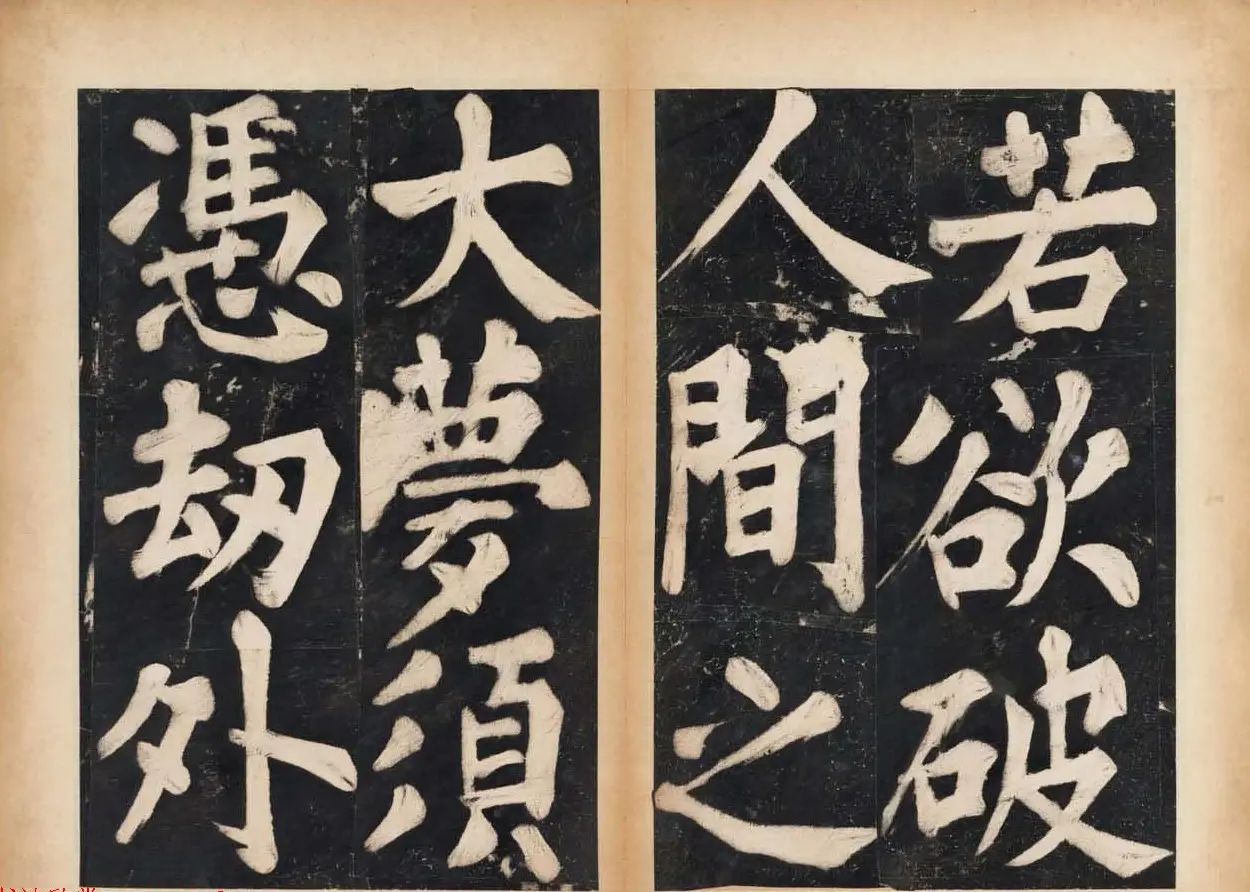 若欲破
人間之
大夢須
憑劫外